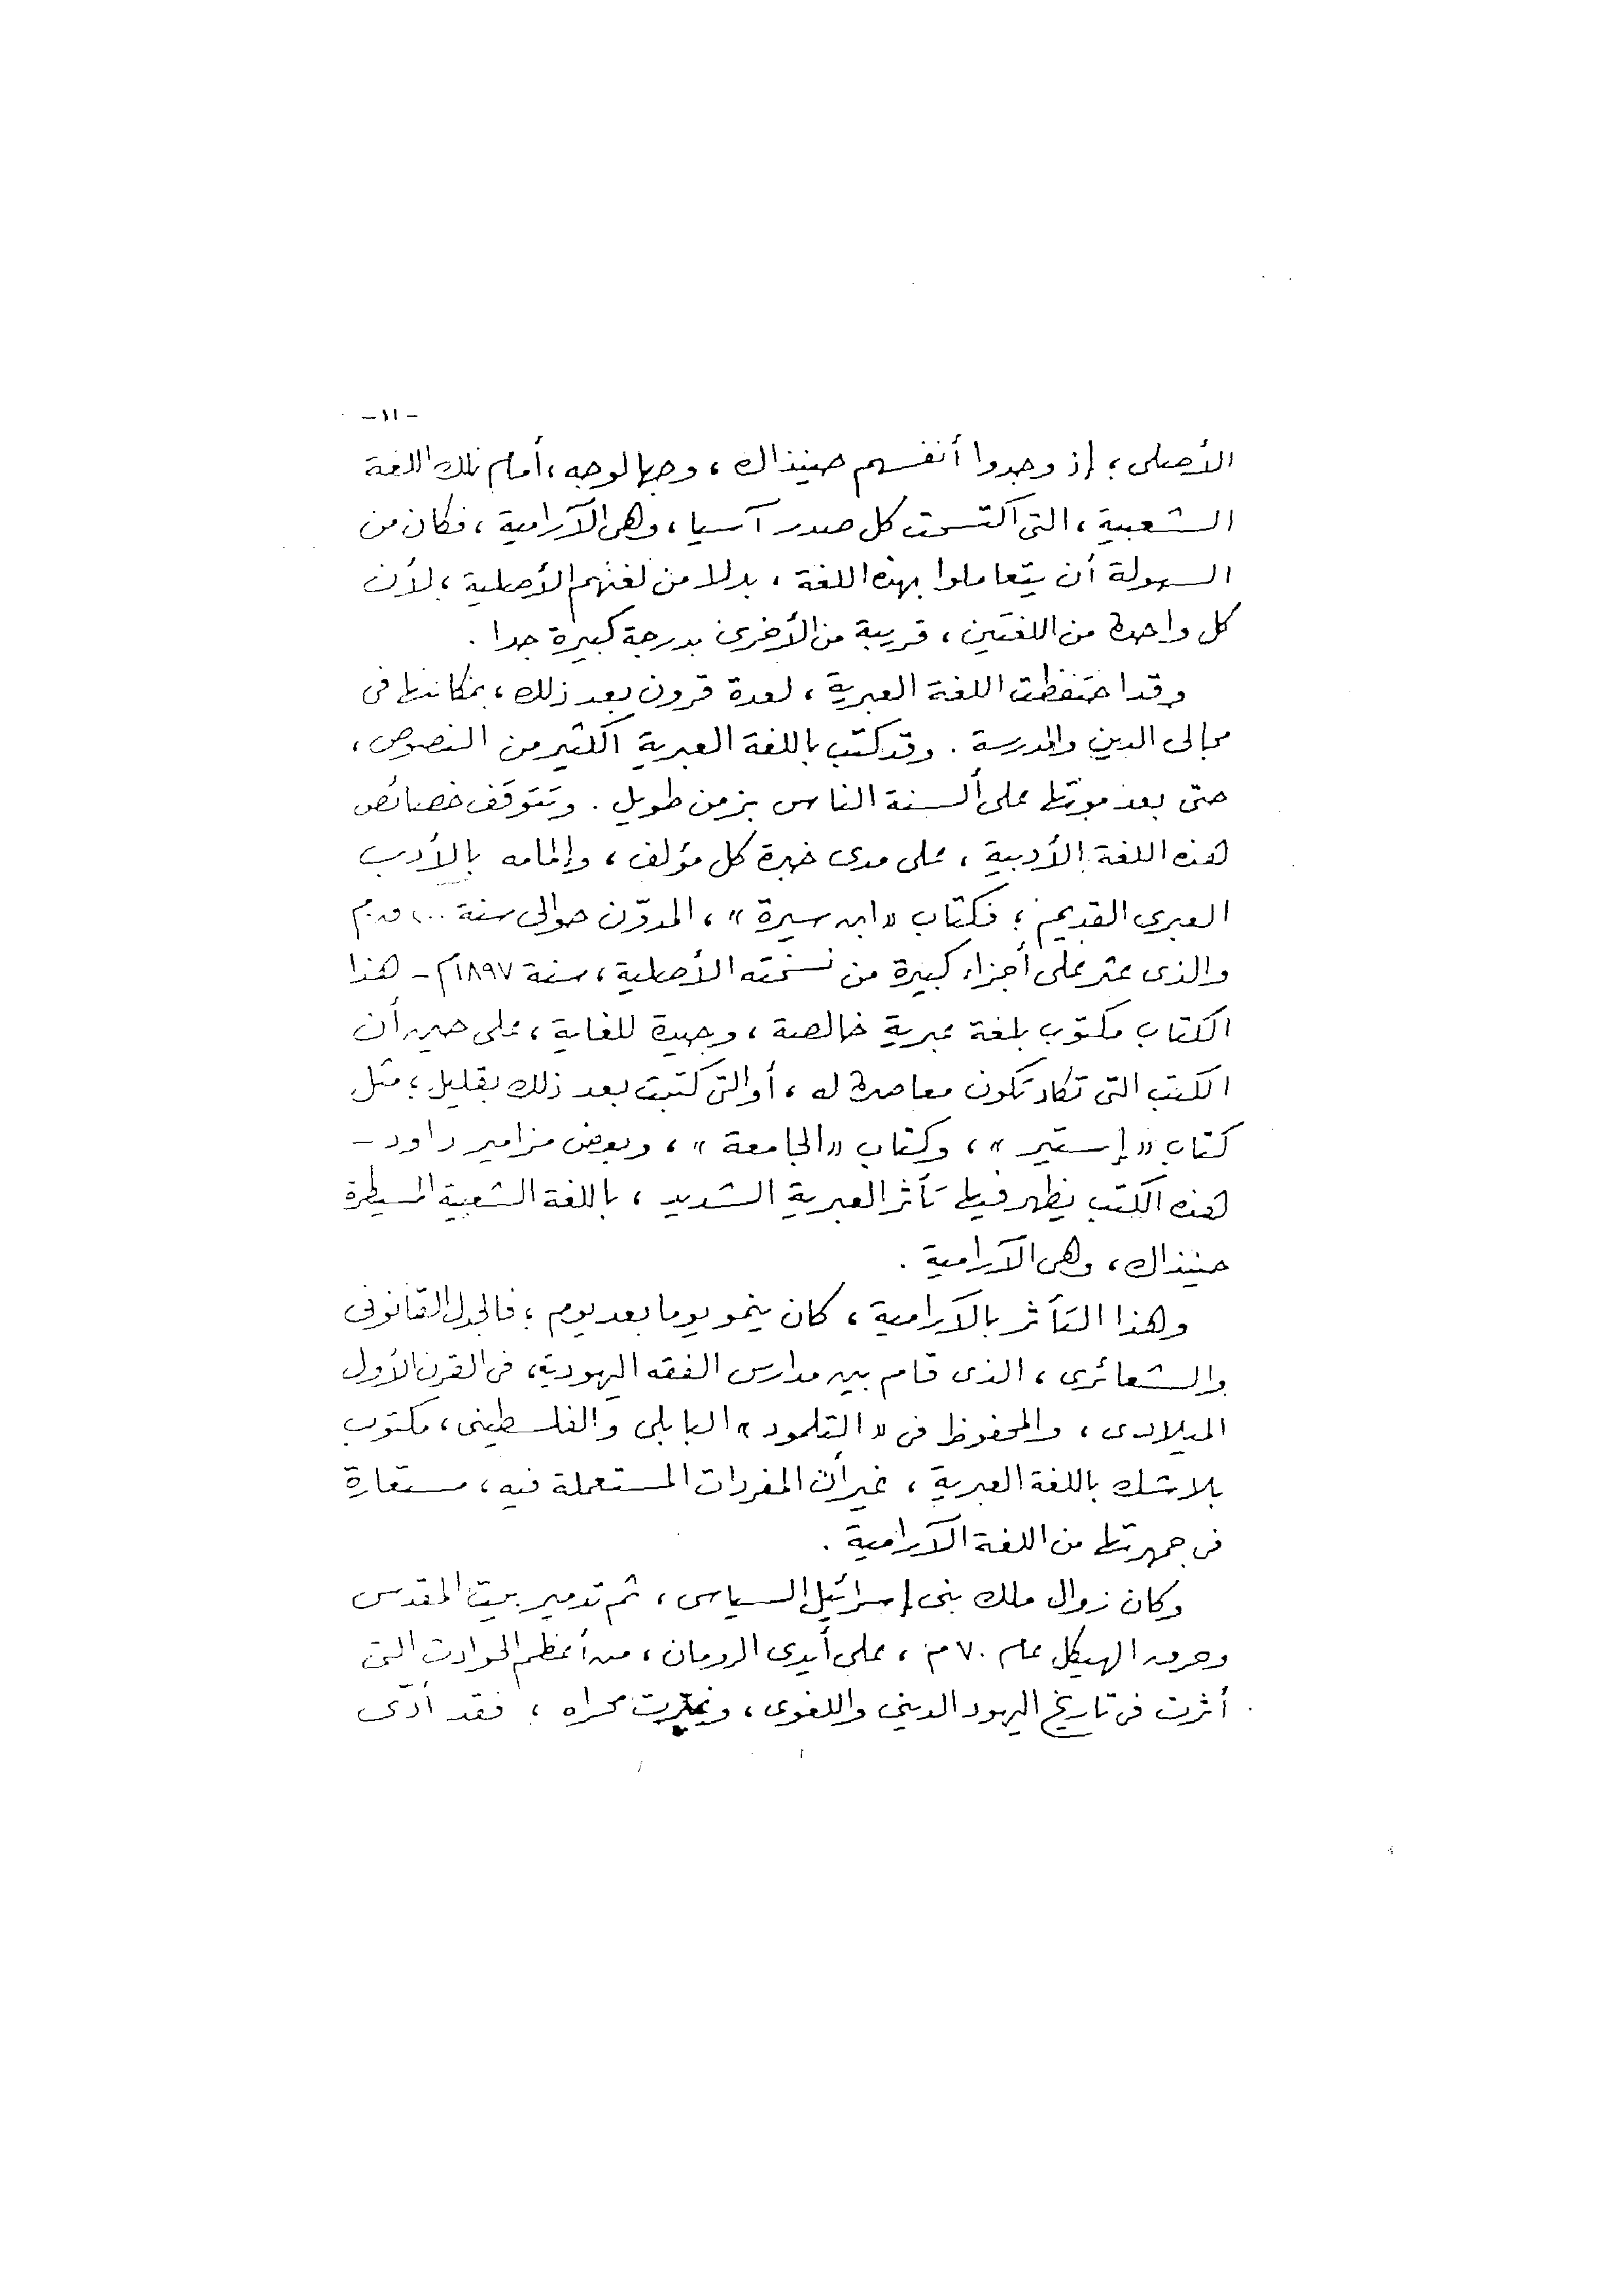 - ١١ -
الأصلى ؛ إذ وجدوا أنفسهم حينذاك ، وجها لوجه ، أمام تلك اللغة
الشعبية ، التى اكتسحت كل صدر آسيا ، وهى الآرامية ، فكان من
السهولة أن يتعاملوا بهذه اللغة ، بدلا من لغتهم الأصلية ؛ لأن
كل واحدة من اللغتين ، قريبة من الأخرى بدرجة كبيرة جدا .
وقد احتفظت اللغة العبرية ، لعدة قرون بعد ذلك ، بمكانتها فى
مجالى الدين والمدرسة . وقد كتب باللغة العبرية الكثير من النصوص ،
حتى بعد موتها على ألسنة الناس بزمن طويل . وتتوقف خصائص
هذه اللغة الأدبية ، على مدى خبرة كل مؤلف ، وإلمامه بالأدب
العبرى القديم ؛ فكتاب « ابن سيرة » ، المدوّن حوالى سنة ق.م
والذى عثر على أجزاء كبيرة من نسخته الأصلية ، سنة ١٨٩٧م - هذا
الكتاب مكتوب بلغة عبرية خالصة ، وجيدة للغاية ، على حين أن
الكتب التى تكاد تكون معاصرة له ، أو التى كتبت بعد ذلك بقليل ؛ مثل
كتاب « إستير » ، وكتاب « الجامعة » ، وبعض مزامير داود -
هذه الكتب يظهر فيها تأثر العبرية الشديد ، باللغة الشعبية المسيطرة
حينذاك ، وهى الآرامية .
وهذا التأثر بالآرامية ، كان ينمو يوما بعد يوم ؛ فالجدل القانونى
والشعائرى ، الذى قام بين مدارس الفقه اليهودية ، فى القرن الأول
الميلادى ، والمحفوظ فى « التلمود » البابلى والفلسطينى ، مكتوب
بلا شك باللغة العبرية ، غير أن المفردات المستعملة فيه ، مستعارة
فى جمهرتها من اللغة الآرامية .
وكان زوال ملك بنى إسرائيل السياسى ، ثم تدمير بيت المقدس
وحرق الهيكل عام ٧٠ م ، على أيدى الرومان ، من أعظم الحوادث التى
أثرت فى تاريخ اليهود الدينى واللغوى ، وغيّرت مجراه ؛ فقد أدّى